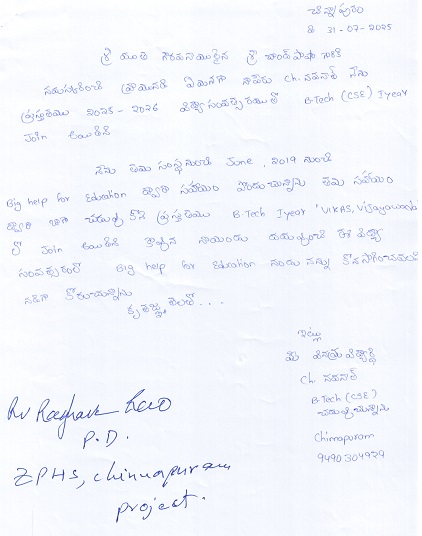 చిన్నాపురం
ది 31-07-2025
శ్రీ యుత గౌరవనీయులైన శ్రీ చాంద్ పాషా గారికి
నమస్కరించి వ్రాయునది ఏమనగా నాపేరు Ch. నవనీత్ నేను
ప్రస్తుతము 2025 - 2026 విద్యాసంవత్సరములో B-Tech (CSE) I year
Join అయితిని
నేను తమ సంస్థ నుంచి June, 2019 నుంచి
Big help for Education ద్వారా సహాయం పొందుచున్నాను తమ సహాయం
ద్వారా బాగా చదువు కొని ప్రస్తుతము B-Tech I year 'VIKAS, Vijayawada'
లో Join అయితిని కావున నాయందు దయవుంచి ఈ విద్యా
సంవత్సరంలో Big help for Education నందు నన్ను కొనసాగించవల
సినదిగా కోరుచున్నాను
కృతజ్ఞతలతో . . .
ఇట్లు
మీ వినయ విద్యార్థి
Ch. నవనీత్
B-Tech (CSE)
చదువుచున్నాను
Chinnapuram
9490304929
RV Raghava Rao
P.D.
ZPHS, chinnapuram
project.